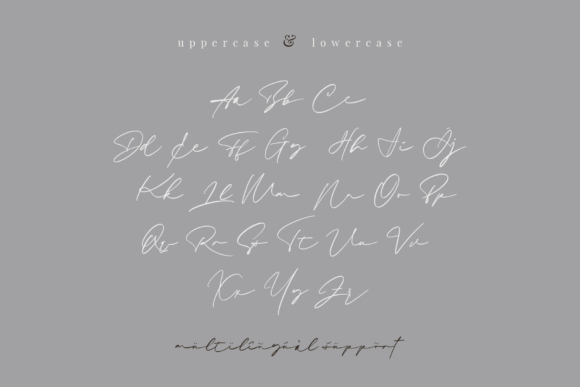 uppercase & lowercase
Aa Bb Cc
Dd Ee Ff Gg Hh Ii Jj
Kk Ll Mm Nn Oo Pp
Qq Rr Ss Tt Uu Vv
Xx Yy Zz
múltilíngüál süppört